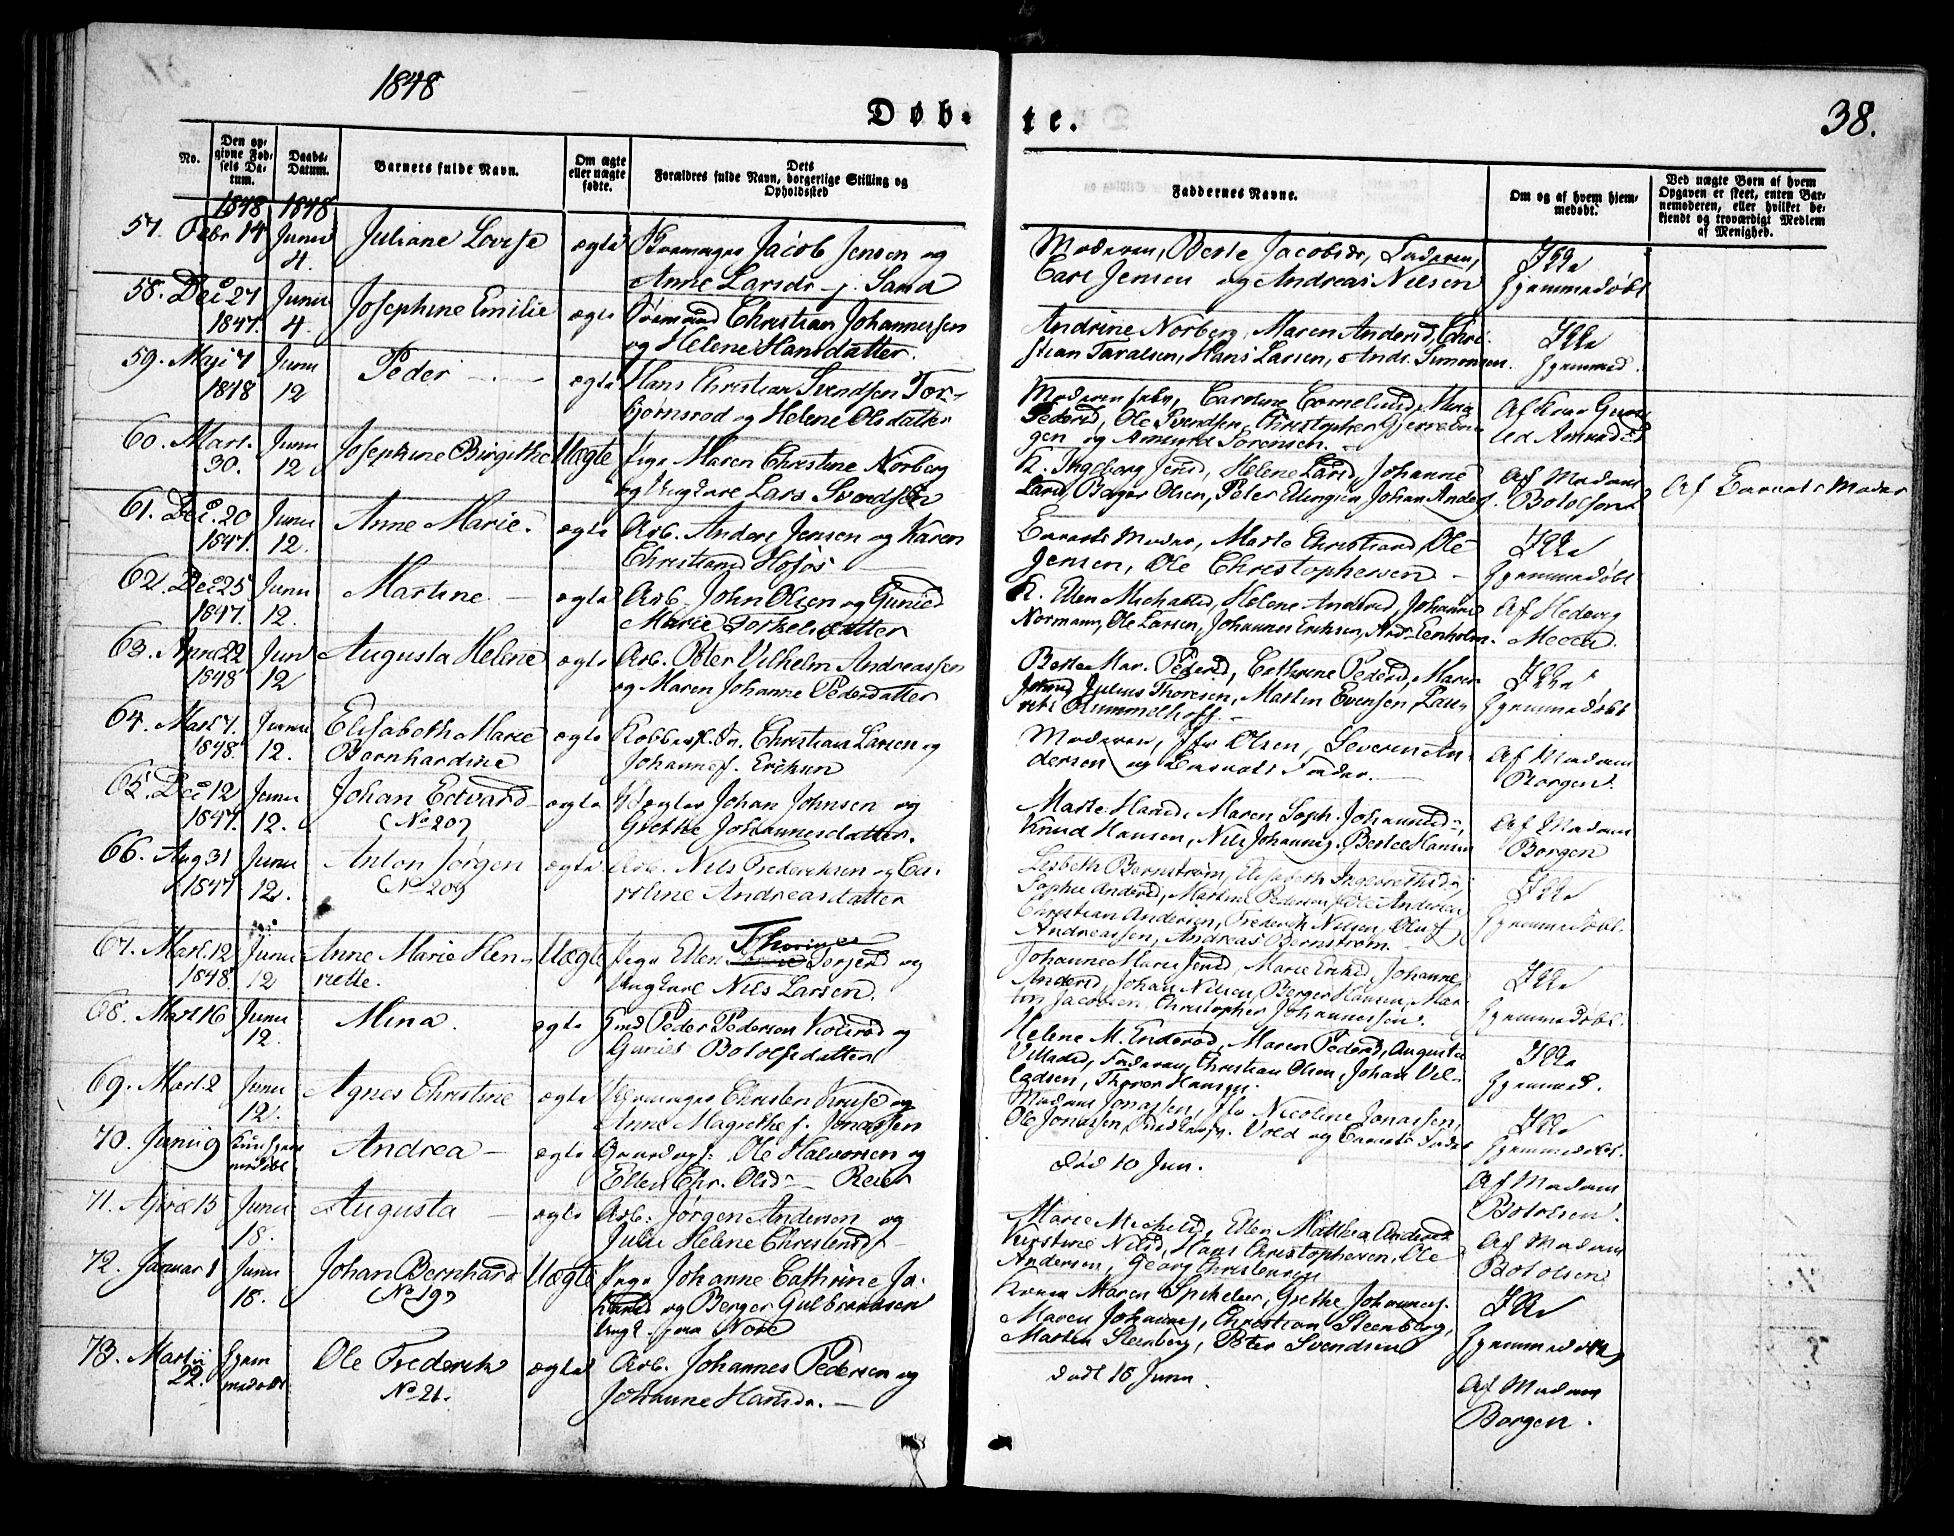 1848
Døb-
te.
38.
No.
Den op-
givne Fød-
sels Da-
tum.
Daabs-
Datum.
Barnets fulde Navn.
Om ægte
eller uægte
fødte.
Dets
Forældres fulde Navn, borgerlige Stilling og
Opholdssted
Faddernes Navne.
Om og af hvem hjem-
medøbt.
Ved uægte Børn af hvem
Opgaven er skeet, enten Bar-
nemoderen, eller hvilket be-
kjendt og troværdigt Medlem
af Menighed.
1848 1848
57. Febr 14 Junii 4. Juliane Lovise ægte Jacob Jensen og
Anne Larsdr
Moderen, Berte Jacobsdr, Faderen,
Carl Jensen og Andreas Nilsen
Ikke
hjemmedøbt
58. Dec 27 1847. Junii 4. Josephine Emilie ægte Sømand Christian Johannessen
og Helene Hansdatter.
Andrine Norberg, Maren Andersd, Chri-
stian Taralsen, Hans Larsen, Andr. Simonsen.
Ikke
hjemmed.
59. Maji 7 1848 Junii 12 Peder ægte Hans Christian Svendsen Tor-
bjørnsrød og Helene Olsdatter
Moderen selv, Caroline Cornelius,
Pedersd, Ole Svendsen, Christopher
gen og Amund Sørensen.
Af
60. Mart. 30. Junii 12 Josephine Birgithe Uægte Pige Maren Christine Norberg
og Ungkarl Lars Svendsen
K. Ingeborg Jensd, Helene Larsd, Johanne
Larsd, Børger Olsen, Peter Ellingsen, Johan Anders.
Af Madam
Botolfsen
Af Barnets Moder
61. Dec. 20 1847. Junii 12. Anne Marie. ægte Arb. Anders Jensen og Karen
Christiansd
Barnets Moder, Marte Christiansd, Ole
Jensen, Ole Christophersen
Ikke
hjemmedøbt
62. Dec 25 1847. Junii 12. Martine ægte Arb. John Olsen og Gunild
Marie Torkelsdatter
K. Ellen Michelsd, Helene Andersd, Johannes
Normann, Ole Larsen, Johannes Eriksen, Andr.
Af Hedevig
63. April 22 1848 Juni 12 Augusta Helene ægte Arb. Peter Vilhelm Andreassen
og Maren Johanne Pedersdatter
Berte Mar. Pedersd, Cathrine Pedersd, Maren
Julius Thoresen, Martin Evensen, Lau-
rits Rummelhoff.
Ikke
hjemmedøbt
64. Mart. 7. 1848. Junii 12. Elisabeth Marie
Bernhardine
ægte Christian Larsen og
Johanne f. Eriksen
Moderen, Jfr Olsen, Severin An-
dersen og Barnets Fader.
Af Madam
Borgen.
65. Dec 12 1847. Junii 12. Johan Edvard
(No 20)
ægte Johan Johnsen og
Grethe Johannesdatter.
Marte Hansd, Maren Soph. Johannesd.,
Knud Hansen, Nils Johannes. Bertel Hansen
Af Madam
Borgen
66. Aug 31 1847 Junii 12. Anton Jørgen
(No 20)
ægte Arb. Nils Frederiksen og Ca-
roline Andreasdatter
Lisbeth Bernstrøm, Elisabeth
Sophie Andersd, Martine Pedersen, Ole Andersen
Christian Andersen, Frederik Nilsen, Oluf
Andreassen, Andreas Bernstrøm.
Ikke
hjemmedøbt.
67. Mart. 12 1848. Junii 12 Anne Marie Hen-
riette.
Uægte Pige Ellen Thorine Torjersd og
Ungkarl Nils Larsen.
Johanne Marie Jensd, Marie Eriksd, Johanne
Andersd, Johan Nilsen, Berger Hansen, Mar-
tin Jacobsen, Christopher Johannessen.
Ikke
hjemmedøbt.
68. Mart 16 Junii 12. Mina. ægte Gmd Peder Pedersen Kolsrød og
Gunild Botolfsdatter
Helene M. Enderød, Maren Pedersd, Augusta
Villadsd, Faderen, Christian Olsen, Johan Vil-
ladsen, Thorer Hansen.
Ikke
hjemmed.
69. Mart. 2 Junii 12. Agnes Christine ægte Christen Kruse og
Anne Magrethe f. Jonassen
Madam Jonassen, Jfr Nicoline Jonassen,
Ole Jonassen, Vold og Barnets Fader
Ikke
hjemmedøbt.
70. Junii 9 Kun hjem-
medøbt
Andrea ægte Ole Halvorsen og
Ellen Chr. Olsd Reier
Død 10 Jun.
Af Madam
Botolfsen.
71. April 15 Junii 18. Augusta ægte Arb. Jørgen Andersen og
Julie Helene Christensd
Marie Michelsd, Ellen Mathea Andersd
Kirstine Nilsd, Hans Christophersen, Ole
Andersen, Georg Christensen
Af Madam
Botolfsen
72. Januar 1 Junii 18. Johan Bernhard
(No 19)
Uægte Pige Johanne Cathrine Jo-
hansd og Berger Gulbrandsen
Ungk. fra
Kone Maren Spikeber, Grethe Johannes.
Maren Johannes, Christian Steenberg,
Martin Steenberg, Peter Svendsen
Ikke
hjemmedøbt
73. Martii 22. Hjem
medøbt
Ole Frederik
No 21.
ægte Arb. Johannes Pedersen og
Johanne Hansdr.
død 18 Junii.
Af Madam
Borgen.